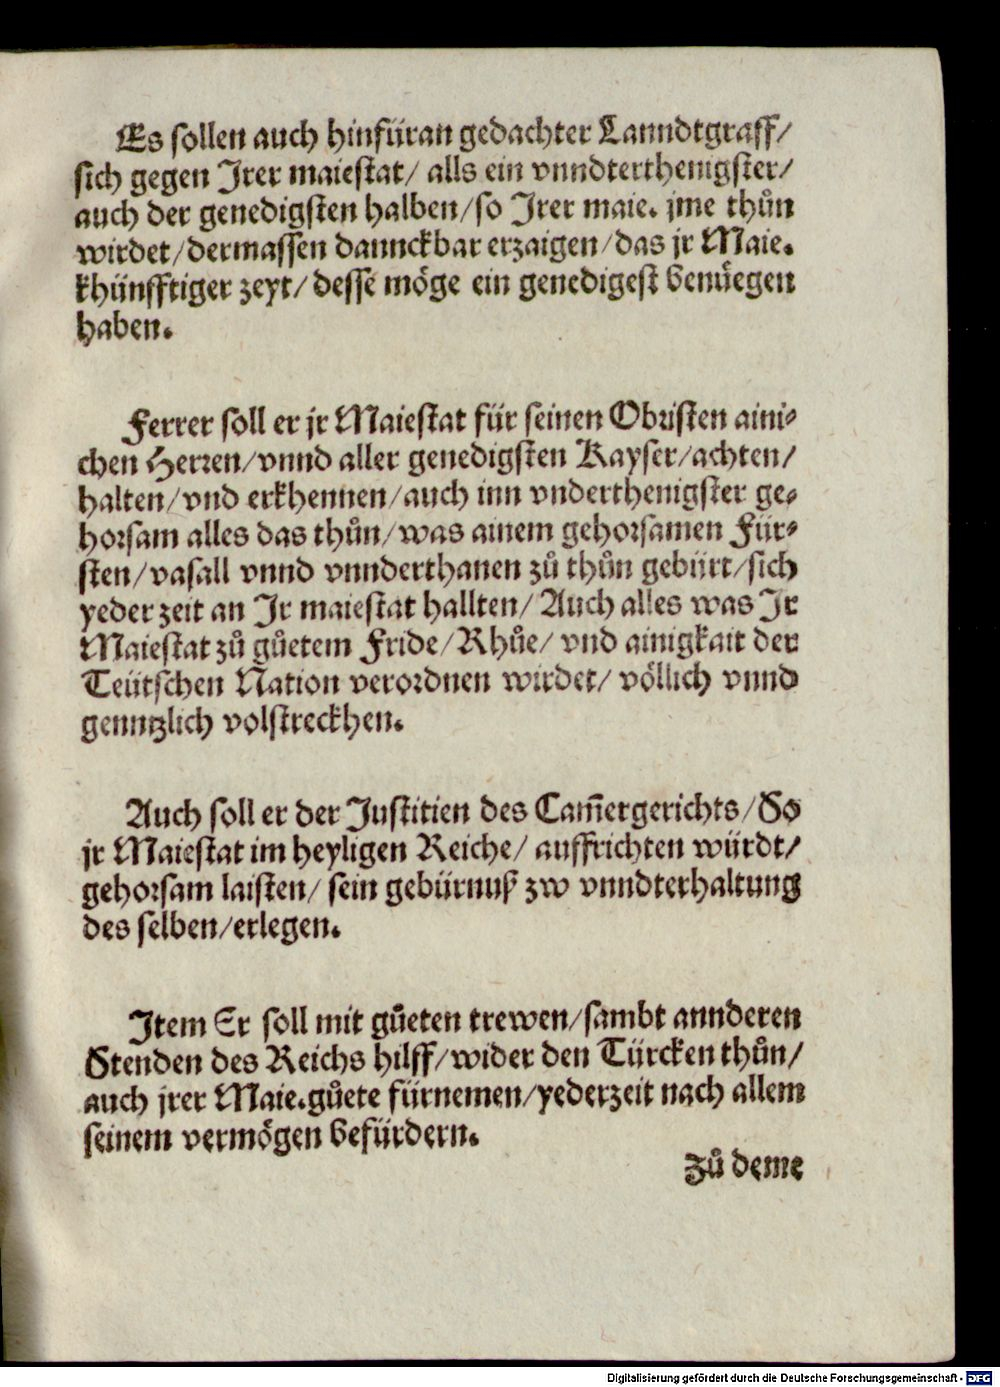 Es sollen auch hinfüran gedachter Lanndtgraff/
sich gegen Jrer maiestat/ alls ein vnndterthenigster/
auch der genedigsten halben/so Jrer maie. jme thůn
wirdet/dermassen dannckbar erzaigen/das jr Maie.
khünfftiger zeyt/ dessē möge ein genedigest benüegen
haben.
Ferrer soll er jr Maiestat für seinen Obristen aini⸗
chen Herren/vnnd aller genedigsten Kayser/achten/
halten/vnd erkhennen/auch inn vnderthenigster ge⸗
horsam alles das thůn/was ainem gehorsamen Für⸗
sten/vasall vnnd vnnderthanen zů thůn gebürt/sich
yeder zeit an Jr maiestat hallten/ Auch alles was Jr
Maiestat zů gůetem Fride/Rhůe/ vnd ainigkait der
Teütschen Nation verordnen wirdet/ völlich vnnd
genntzlich volstreckhen.
Auch soll er der Justitien des Cam̄ergerichts/So
jr Maiestat im heyligen Reiche/ auffrichten würdt/
gehorsam laisten/ sein gebürnuß zw vnndterhaltung
des selben/erlegen.
Jtem Er soll mit gůeten trewen/sambt annderen
Stenden des Reichs hilff/wider den Türcken thůn/
auch jrer Maie.gůete fürnemen/yederzeit nach allem
seinem vermögen befürdern.
Zů deme
Digitalisierung gefördert durch die Deutsche Forschungsgemeinschaft - DFG